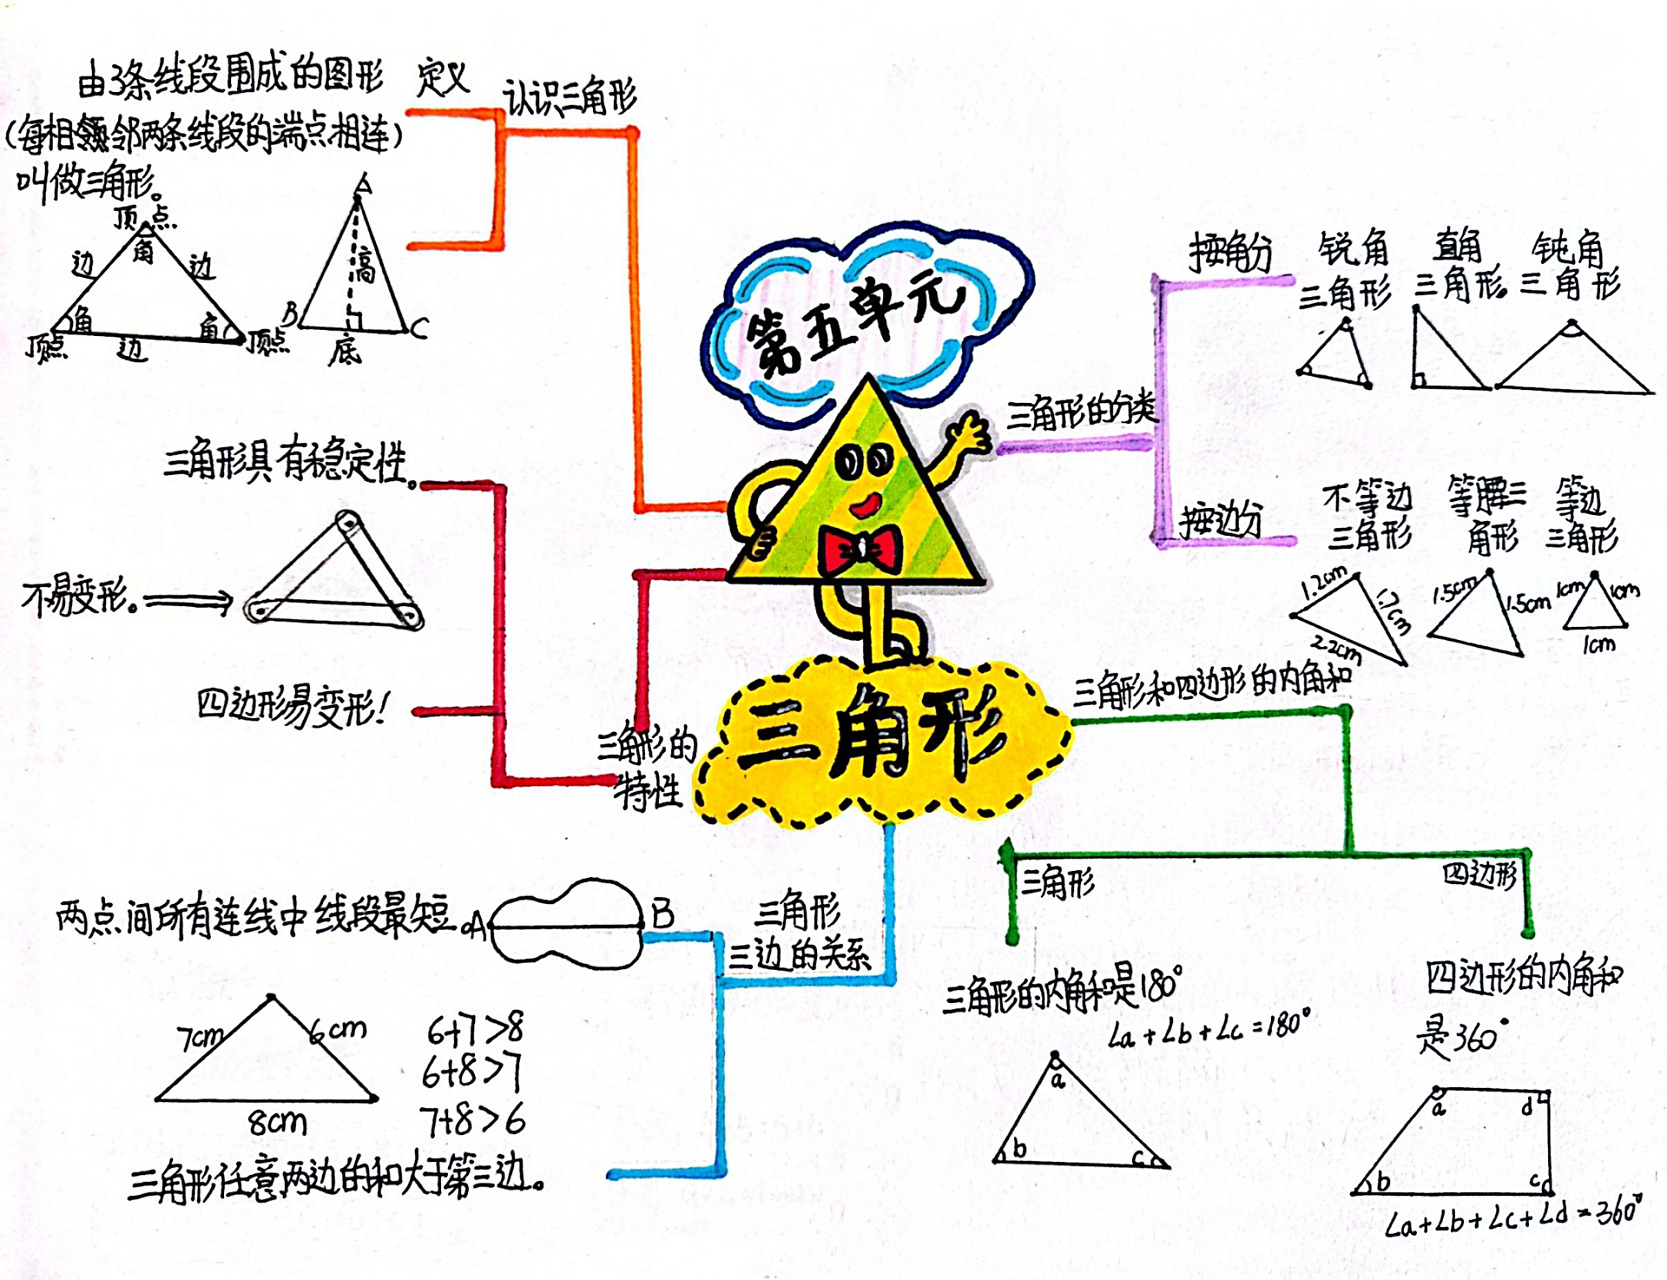 第五单元
三角形
认识三角形
定义
由3条线段围成的图形
(每相邻两条线段的端点相连)
叫做三角形。
顶点
角
边
边
角
角
顶点
边
顶点
A
高
B
C
底
三角形的
特性
三角形具有稳定性。
不易变形。
四边形易变形!
三角形
三边的关系
两点间所有连线中线段最短。
A
B
7cm
6cm
8cm
6+7>8
6+8>7
7+8>6
三角形任意两边的和大于第三边。
三角形的分类
按角分
锐角
三角形
直角
三角形。
钝角
三角形
按边分
不等边
三角形
等腰三
角形
等边
三角形
1.2cm
1.7cm
2.2cm
1.5cm
1.5cm
1cm
1cm
1cm
三角形和四边形的内角和
三角形
四边形
三角形的内角和是180°
∠a+∠b+∠c=180°
a
b
c
四边形的内角和
是360°
a
d
b
c
∠a+∠b+∠c+∠d=360°